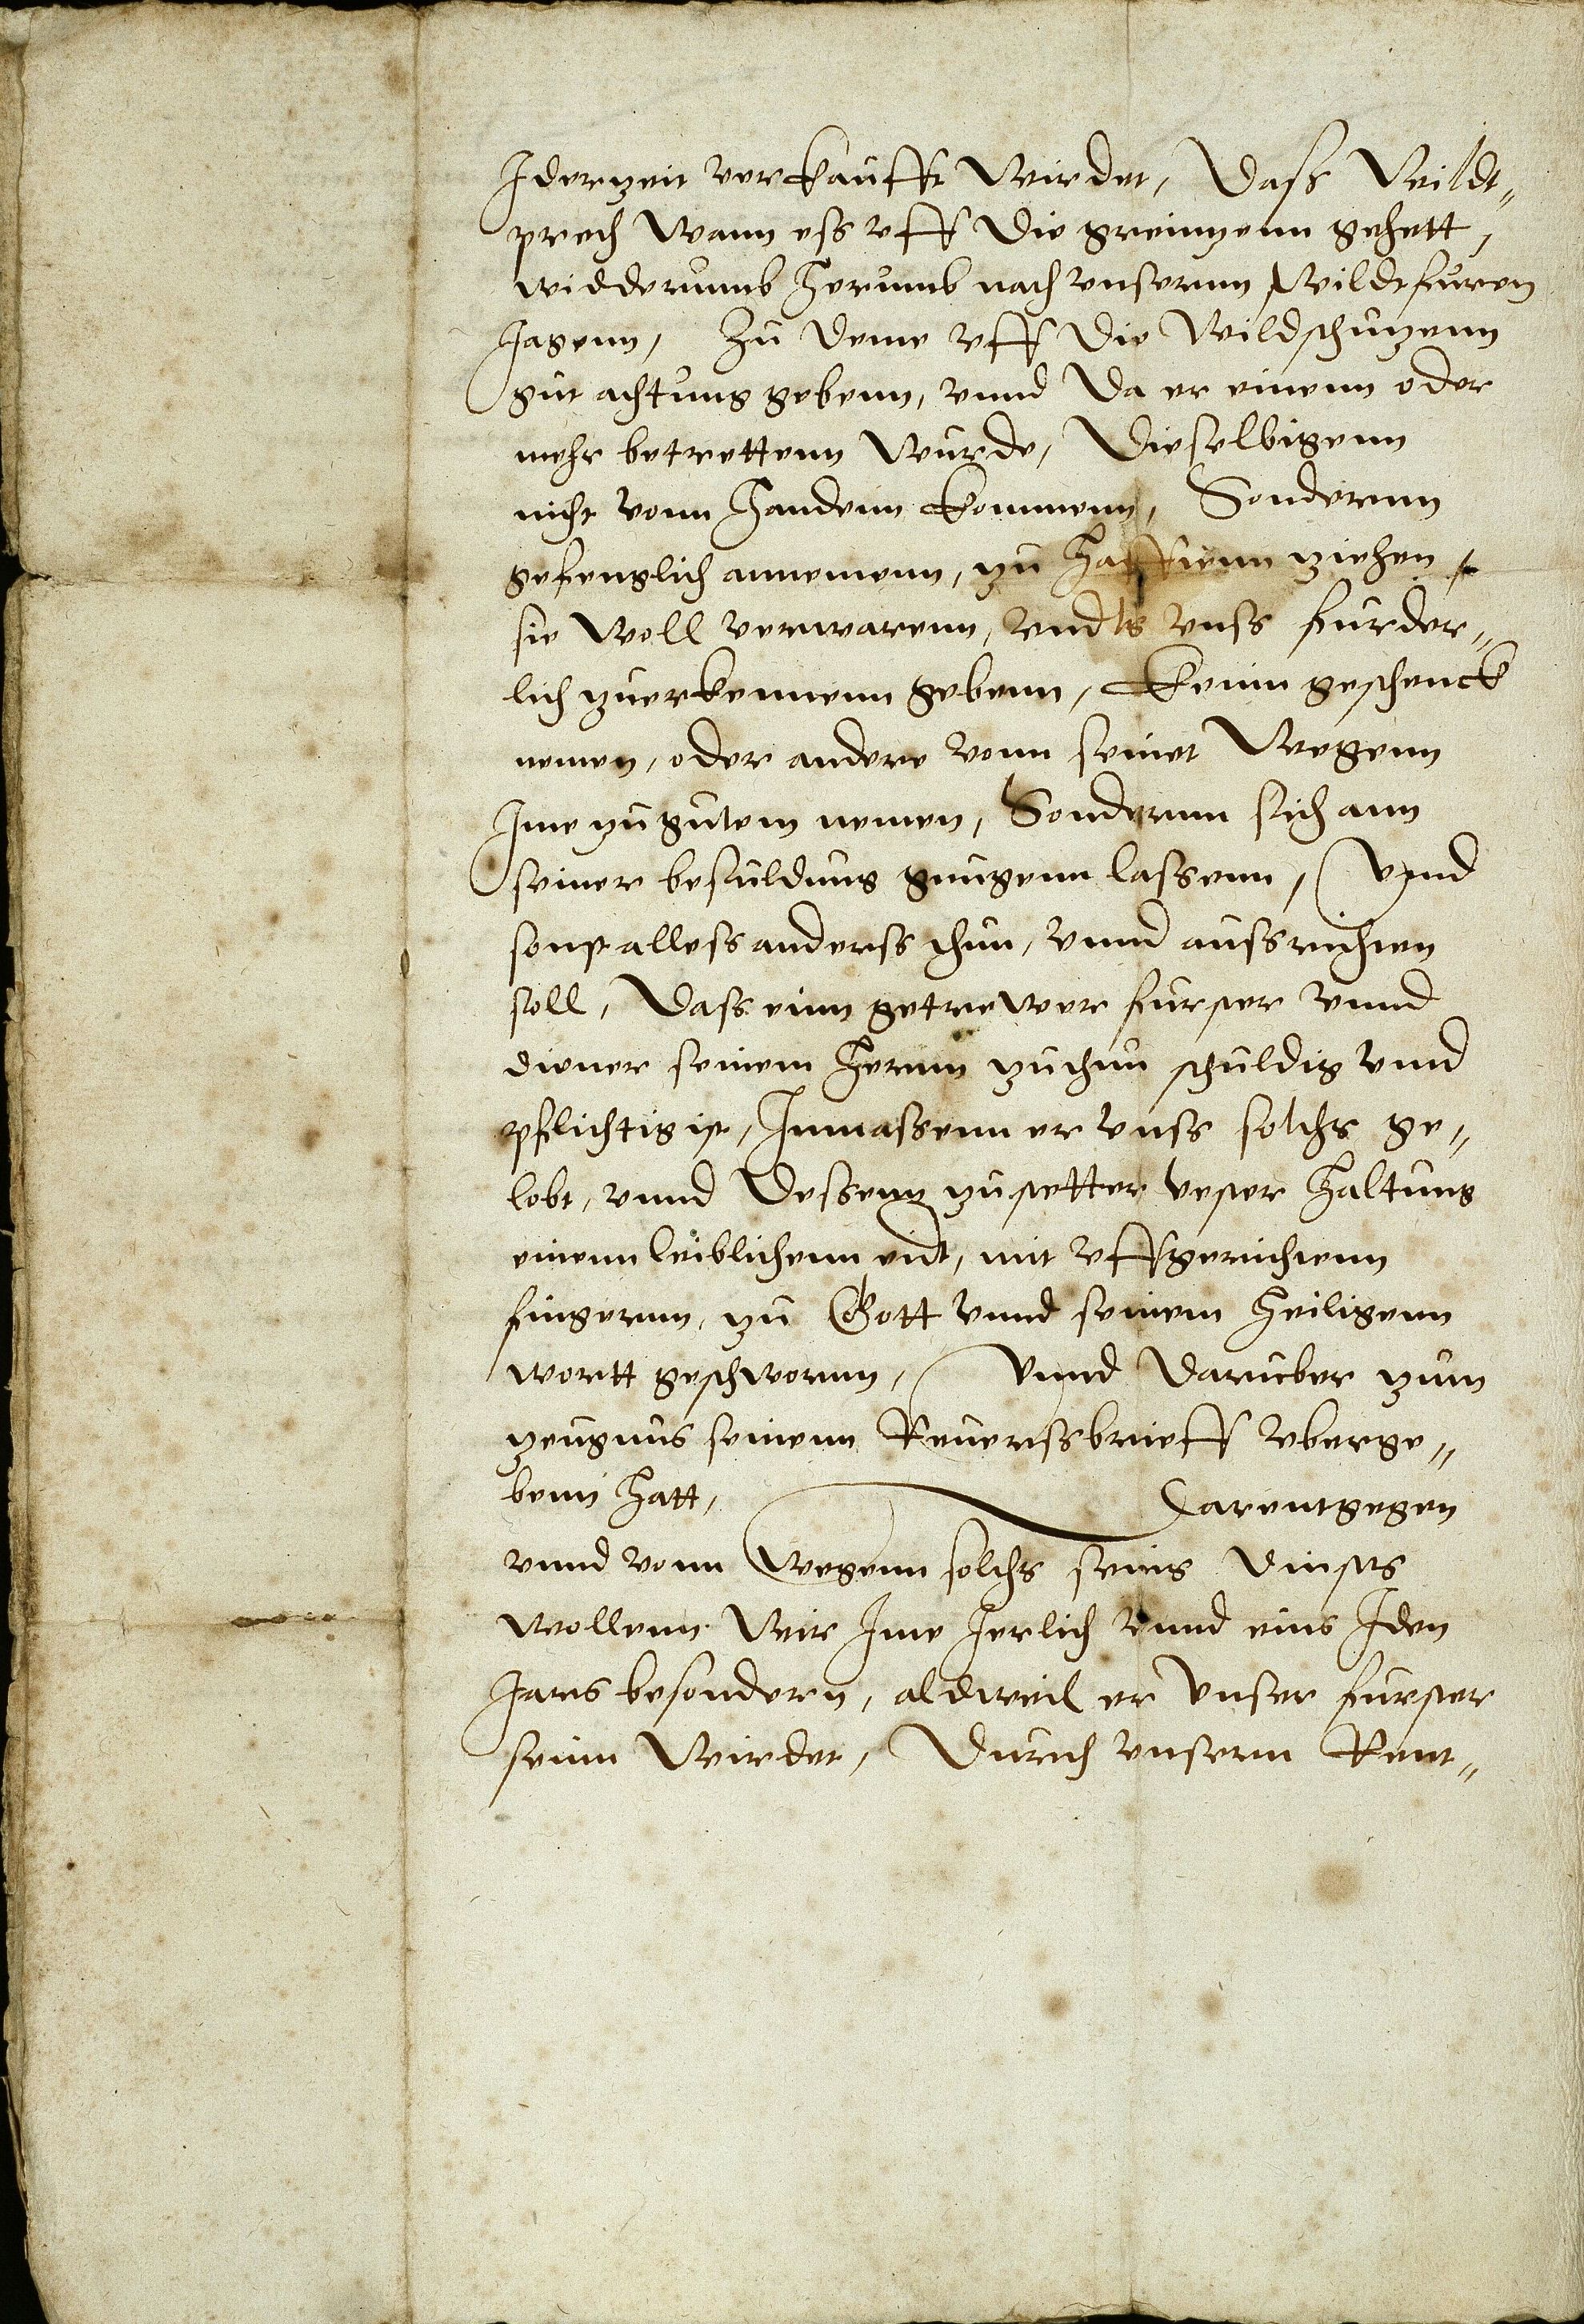 Iderzeit verkaufft wirdet, Dass Wildt„
prech wann ess vff die greinzenn gehett,
widderumb herumb nach vnsernn Wildtfuren
Jagenn, Zu deme vff die Wildschutzenn
gut achtung gebenn, vnnd da er einenn oder
mehr betrettenn wurde, Dieselbigenn
nicht vonn handenn kommenn, Sondernn
gefenglich annemenn, zu hafftenn ziehen,
sie woll verwarenn, vnd es vnss furder„
lich zuerkennenn gebenn, keinn geschenck
nemen, oder andere vonn seinet wegenn
Ime zu gutem nemen, Sondernn sich ann
seiner besuldung gnugenn lassenn, Vnnd
sonst alless anderss thun, vnnd aussrichten
soll, Dass einn getrewer furster vnnd
diener seinem hernn zuthun schuldig vnnd
pflichtig ist, Inmassenn er vnss solchs ge„
lobt, vnnd dessenn zu stetter vester haltung
einenn leiblichenn eidt, mit vffgerichtenn
fingernn, zu Gott vnnd seinem heiligenn
wortt geschwornn, Vnnd daruber zum
zeugnus seinenn Reuerssbrieff vberge„
benn hatt, Darentgegen
vnnd vonn wegenn solchs seins dinsts
wollenn wir Ime Jerlich vnnd eins Iden
Jares besondern, aldweil er vnser furster
seinn wirdet, Durch vnsern Rent„